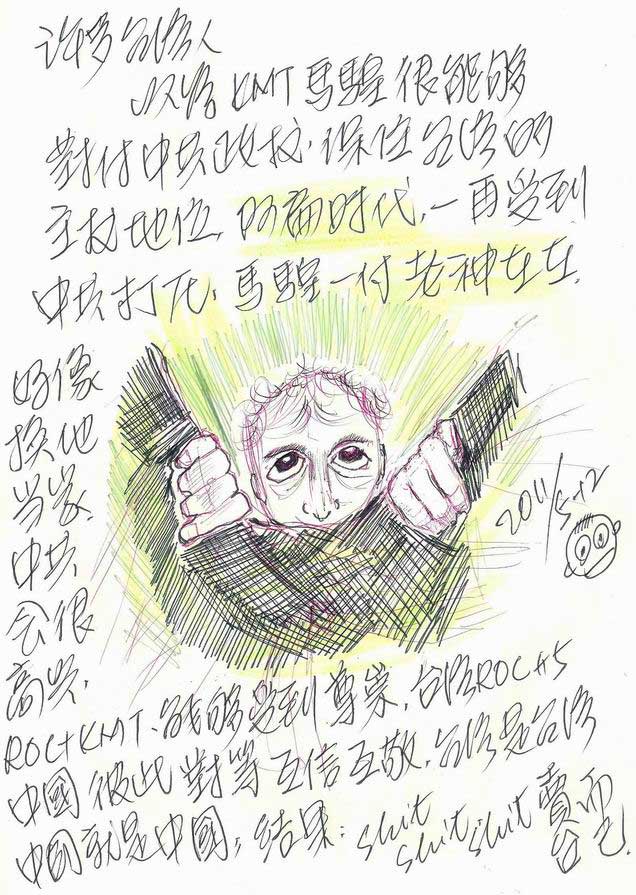 许多台湾人
以为KMT馬騜很能够
對付中共政权,保住台湾的
主权地位,阿扁时代,一再受到
中共打压,馬騜一付老神在在.
好像
换他
当家.
中共
会很
高兴.
2011/5+2
ROC+KMT.能够受到尊崇,台湾ROC
中國彼此對等互信互敬.台湾是台湾
中國就是中國,结果: shit shit shit 費而